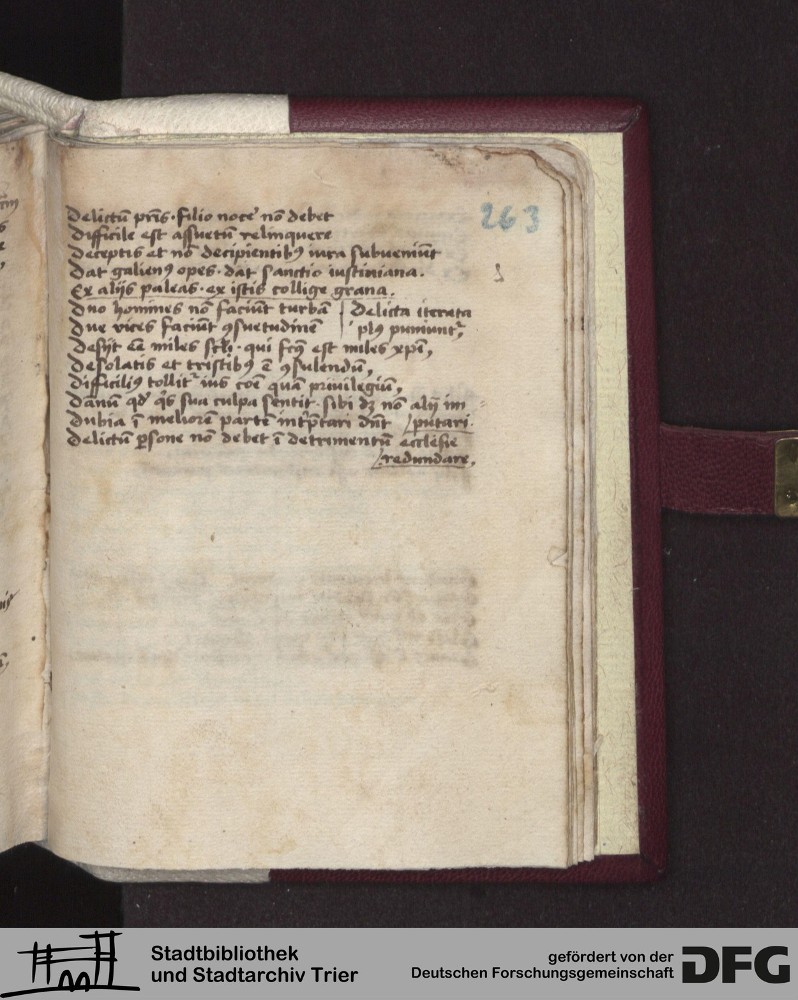 263
Delictū pr̄is · filio noce᷑ nō debet
Difficile est assuetū relinquere
Deceptis et nō decipientibꝫ iura subueniūt
Dat galienꝰ opes · dat sanctio iustiniana .
Ex alijs paleas · ex istis collige grana .
Duo homines nō faciūt turbā
Due vices faciūt ꝯsuetudinē
Delicta iterata
plꝰ puniunt᷑
Desijt eē miles qui est miles xp̄i,
Desolatis et tristibꝫ ē ꝯsulendū,
Difficiliꝰ tollit᷑ ius coē quā priuilegiū,
Dānū qd' q̄s sua culpa sentit · sibi dꝫ nō alij im
Dubia ī meliorē partē int̄p̄tari dn̄t putari .
Delictū ꝑsone nō debet ī detrimentū ecclesie
redundare,
Stadtbibliothek
und Stadtarchiv Trier
gefördert von der
Deutschen Forschungsgemeinschaft
DFG